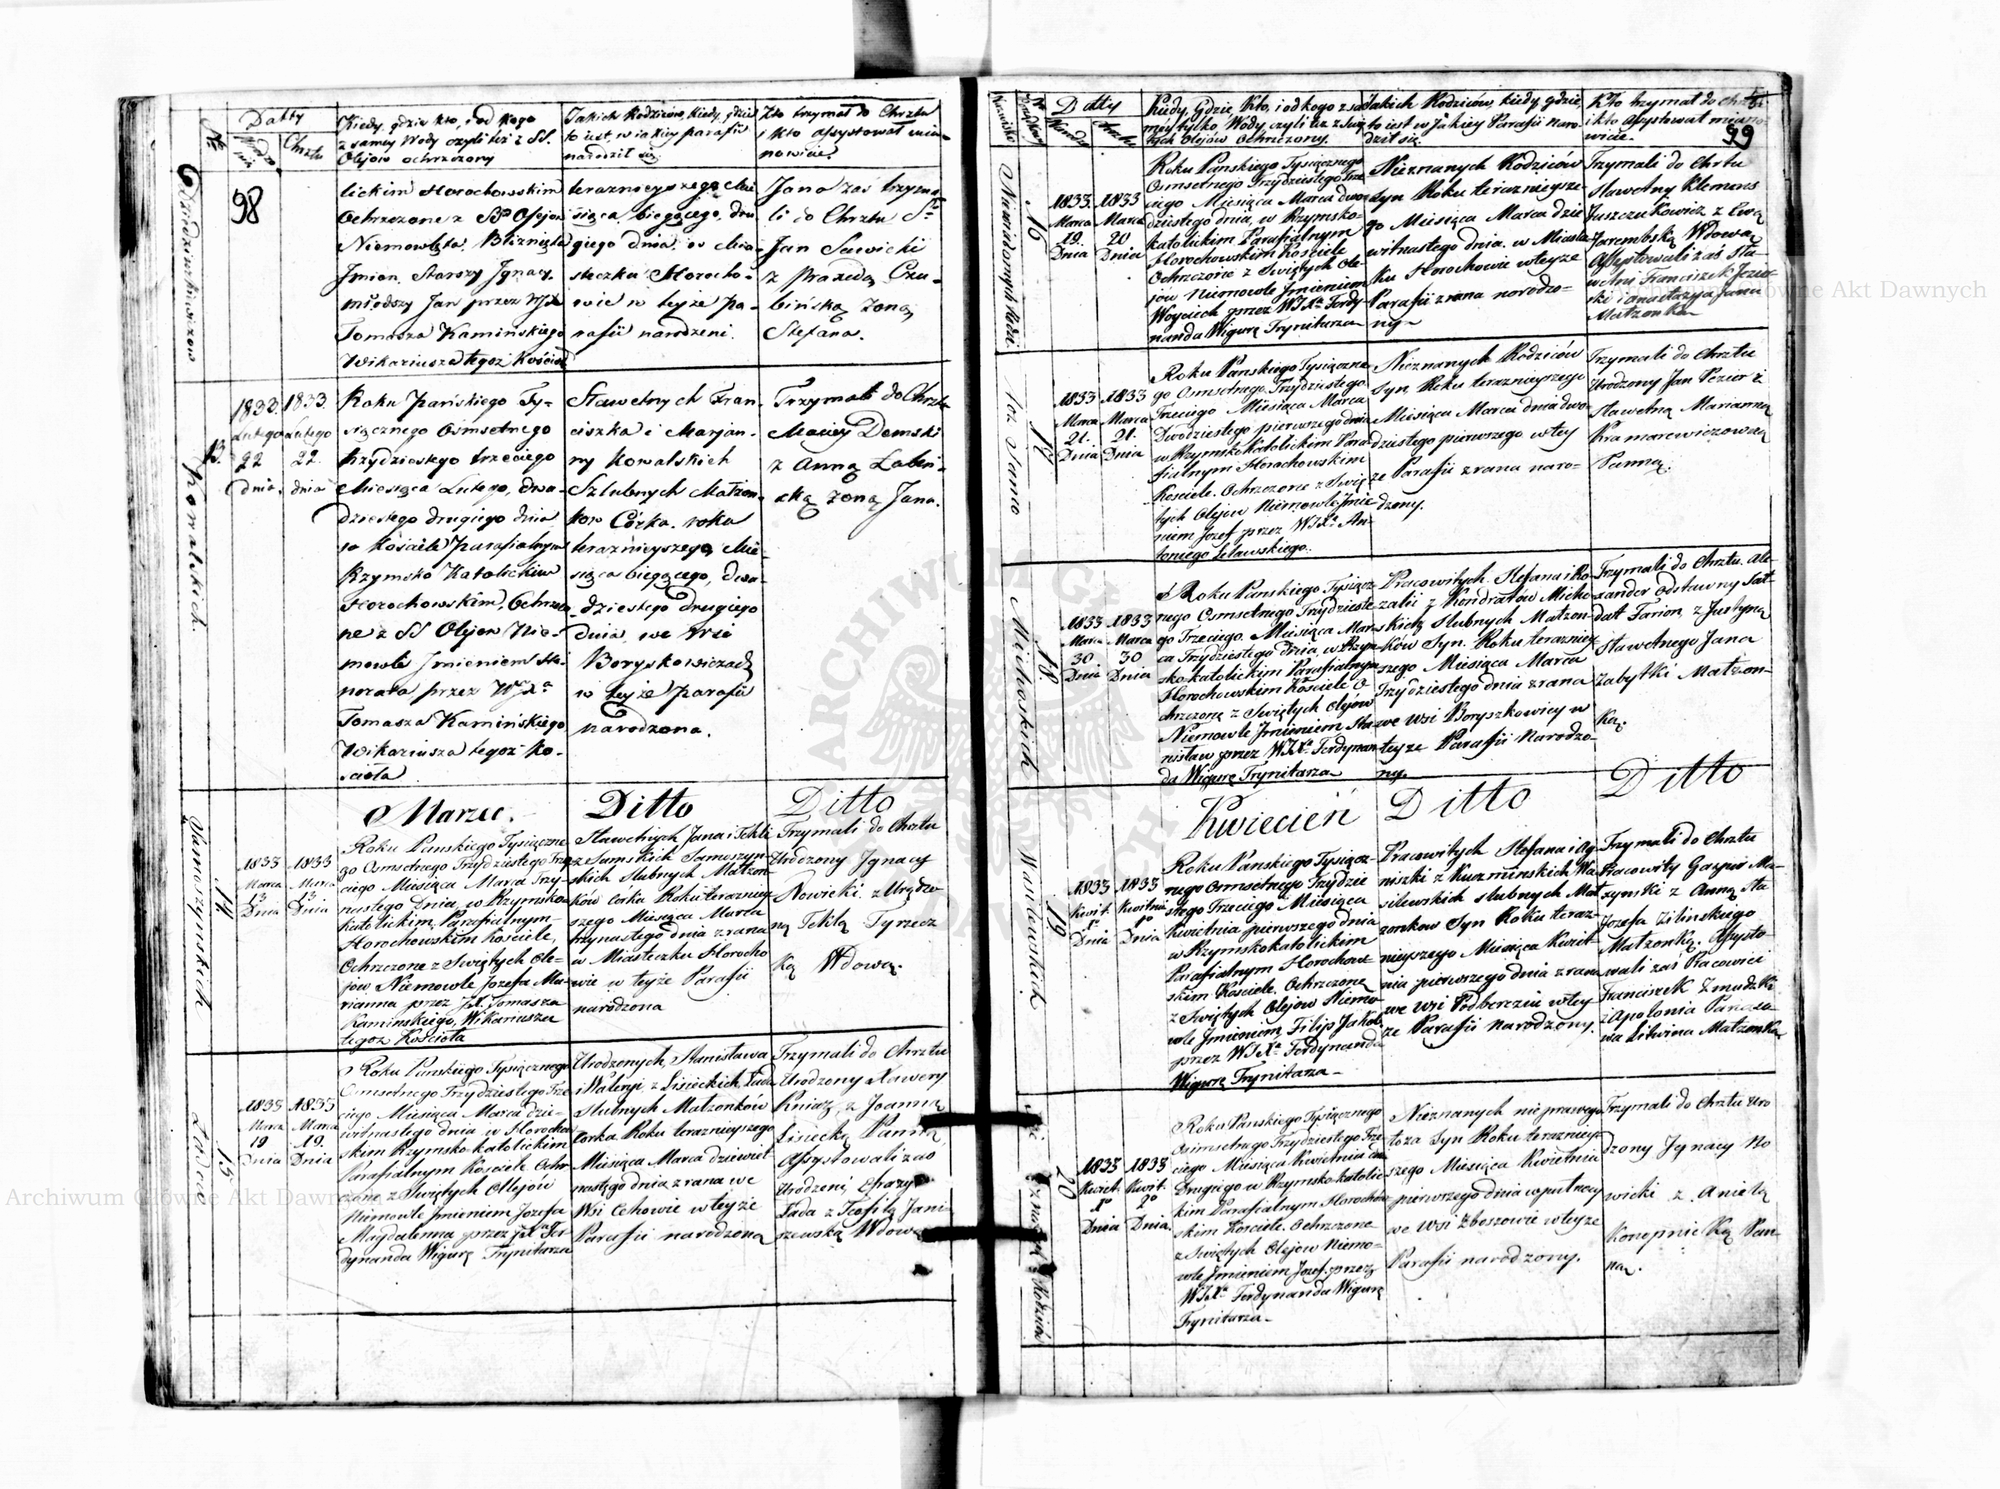 Datty
Chrztu
Kiedy, gdzie kto, i od kogo
z samey Wody czyli też z SS.
Olejow ochrzczony
Jakich Rodziców, kiedy, gdzie
to iest, w iakiey parafii
narodził się
Kto trzymał do Chrztu
i kto assystował mia-
nowicie
98
lickim Horochowskim
Ochrzczone z SS Olejow
Niemowlęta Bliznięta
Imion Starszy Ignacy
młodszy Jan przez WJX
Tomasza Kamińskiego
Wikariusza tegoż Kościoła
teraznieyszego Mie-
siąca biegącego, dru-
giego dnia w Mia-
steczku Horocho-
wie w teyże pa-
rafii narodzeni.
Jana zaś trzyma-
li do Chrztu
Jan Sawicki
z Praxedą Czu-
bińską żoną
Stefana.
13.
Kowalskich.
1833. 1833.
Lutego Lutego
22 22.
dnia dnia
Roku Pańskiego Ty-
siącznego Ośmsetnego
trzydziestego trzeciego
Miesiąca Lutego, dwu-
dziestego drugiego dnia
w Kościele Parafialnym
Rzymsko Katolickim
Horochowskim, Ochrzczo-
ne z SS Olejow Nie-
mowle Imieniem Ho-
norata przez WJXa
Tomasza Kamińskiego
Wikariusza tegoż Ko-
ścioła
Sławetnych Fran-
ciszka i Marjan-
ny Kowalskich
Szlubnych Małżon-
kow Córka. roku
teraznieyszego Mie-
siąca biegącego, dwu-
dziestego drugiego
dnia, we wsi
Boryskowiczach
w teyże parafii
narodzona.
Trzymali do Chrztu
Maciey Demski
z Anną Labin-
ską żoną Jana.
Marzec. Ditto Ditto
14.
Samoszynskich
1833 1833
Marca Marca
13 13
Dnia Dnia
Roku Panskiego Tysiączne-
go Osmsetnego Trzydziestego Trze-
ciego Miesiąca Marca Trzy-
nastego Dnia, w Rzymsko-
katolickim Parafialnym
Horochowskim Kościele,
Ochrzczone z Swiętych Ole-
jow Niemowle Jozefa Ma-
rianna przez JX. Tomasza
Kaminskiego, Wikariusza
tegoz Kościoła
Sławetnych Jana i Tekli
z Samskich Samoszyn-
skich slubnych Małzon-
ków córka Roku teraznie-
szego Miesiąca Marca
trzynastego dnia z rana
w Miasteczku Horocho
wie w teyże Parafii
narodzona
Trzymali do Chrztu
Urodzony Ignacy
Nowicki z Urodzo-
ną Teklą Tyrecz
ką Wdową.
15
Ladów
1833 1833
Marca Marca
19 19.
Dnia Dnia
Roku Panskiego Tysiącznego
Osmsetnego Trzydziestego Trze
ciego Miesiąca Marca dzie-
witnastego dnia w Horochow
skim Rzymsko-katolickim
Parafialnym Kościele Ochr-
zczone z Swiętych Olejów
Niemowle Imieniem Jozefa
Magdalenna przez JXa Fer
dynanda Wigurę Trynitarza
Urodzonych, Stanisława
i Waleryi z Lisieckich Lada
slubnych Małzonków
corka Roku teraznieyszego
Miesiąca Marca dziewięt
nastego dnia z rana we
Wsi Cehowie w teyże
Parafii narodzona
Trzymali do Chrztu
Urodzony Xawery
Kniaź, z Joanną
Lisiecką Panną
Assystowali zaś
Urodzeni
Lada z Teofilą Jani-
szewską Wdową
Nazwisko
Datty
Kiedy, Gdzie, Kto, i od kogo z sa-
mey tylko Wody, czyli też z Swię-
tych Olejów Ochrzczony.
Jakich Rodziców, kiedy, gdzie,
to iest w Jakiey Parafii naro-
dził się.
Kto trzymał do Chrztu
i kto Assystował miano-
wicie.
99
16
Niewiadomych Rodzi.
1833 1833
Marca Marca
19. 20
Dnia Dnia
Roku Panskiego Tysiącznego
Osmsetnego Trzydziestego Trze-
ciego Miesiąca Marca dwu-
dziestego dnia, w Rzymsko-
katolickim Parafialnym
Horochowskim Kościele
Ochrzczone z Swiętych Ole-
jow Niemowle Imieniem
Woyciech przez WJXa Ferdy-
nanda Wigurę Trynitarza
Nieznanych Rodziców
Syn Roku teraznieysze-
go Miesiąca Marca dzie
witnastego dnia. w Miastecz
ku Horochowie w teyże
Parafii z rana narodzo-
ny-
Trzymali do Chrztu
Sławetny Klemens
Juszczukowicz z Ewą
Jarembską Wdową
Assystowali zaś Sła-
wetni Franciszek
ski i Anastazyja Jana
Małzonka
17
Toz Samo
1833 1833
Marca Marca
21. 21.
Dnia Dnia
Roku Panskiego Tysiączne
go Osmsetnego, Trzydziestego
Trzeciego Miesiąca Marca
Dwodziestego pierwszego dnia
w Rzymsko-Katolickim Para
fialnym Horochowskim
Kosciele. Ochrzczone z Swię
tych Olejow Niemowle Imie
niem Jozef przez WJXa An-
toniego Lelawskiego.
Nieznanych Rodziców
Syn Roku teraznieyszego
Miesiąca Marca dnia dwu-
dziestego pierwszego w tey
ze Parafii z rana naro-
dzony.
Trzymali do Chrztu
Urodzony Jan Pezior z
Sławetną Marianną
Kramarewiczowną
Panną.
18
Michowskich
1833 1833
Marca Marca
30 30
Dnia Dnia
Roku Panskiego Tysiącz-
nego Osmsetnego Trzydzieste-
go Trzeciego. Miesiąca Mar-
ca Trzydziestego Dnia, w Rzym
sko-katolickim Parafialnym
Horochowskim Kościele O-
chrzczone z Swiętych Olejów
Niemowle Imieniem Sta-
nisław przez WJXa. Ferdynan-
da Wigurę Trynitarza
Pracowitych. Stefana i Ro-
zalii z Kondratów Micho-
skich slubnych Małzon-
ków Syn. Roku teraznie-
szego Miesiąca Marca
Trzydziestego dnia z rana
we wsi Boryszkowicy w
teyze Parafii Narodzo-
ny.
Trzymali do Chrztu. Ale-
xander odstawny Sał-
dat Farion, z Justyną
Sławetnego Jana
Zabytki Małzon-
ką.
Kwiecień Ditto Ditto
19
Wasilewskich
1833 1833
Kwit. Kwitnia
1º 1º
Dnia Dnia
Roku Panskiego Tysiącz-
nego Osmsetnego Trzydzie
stego Trzeciego Miesiąca
Kwietnia pierwszego dnia
w Rzymsko katolickim
Parafialnym Horochow-
skim Kościele. Ochrzczone
z Swiętych Olejow Niemo-
wle Imieniem Filip Jakob
przez WJXa Ferdynanda
Wigurę Trynitarza-
Pracowitych Stefana i Ag-
niszki z Kuzminskich Wa-
silewskich slubnych Mał-
zonkow Syn Roku teraz-
nieyszego Miesiąca Kwiet-
nia pierwszego dnia z rana
we wsi Podberezie w tey
ze Parafii narodzony.
Trzymali do Chrztu
Pracowity Gaspar Ma-
zynski z Anną Sta
Jozefa Zilinskiego
Małzonką. Assysto-
wali zaś Pracowici
Franciszek Zmudzki
z Apolonią Panaso-
wa Litwina Małzonką
20
Nieznanych Rodziców
1833 1833
Kwiet. Kwit.
1º 2º
Dnia Dnia.
Roku Panskiego Tysiącznego
Osimsetnego Trzydziestego Trze-
ciego Miesiąca Kwietnia dnia
Drugiego w Rzymsko-katolic-
kim Parafialnym Horochow
skim Kościele. Ochrzczone
z Swiętych Olejow Niemo-
wle Imieniem Jozef. przez
WJXa Ferdynanda Wigurę
Trynitarza-
Nieznanych nieprawego
łoza Syn Roku teraznie-
szego Miesiąca Kwietnia
pierwszego dnia
we wsi Zboszowie w teyze
Parafii narodzony.
Trzymali do Chrztu Uro
dzony Ignacy No
wicki z Anielą
Konopnicką Pan-
ną.
ARCHIWUM GŁÓWNE AKT DAWNYCH
Archiwum Główne Akt Dawnych
Archiwum Główne Akt Dawnych